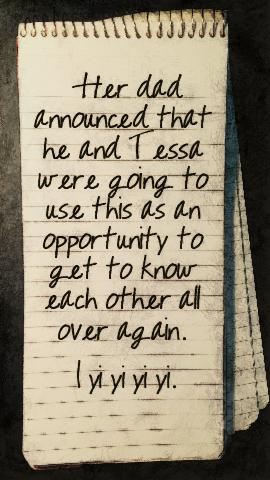 Her dad
announced that
he and Tessa
were going to
use this as an
opportunity to
get to know
each other all
over again.
I yi yi yi yi.